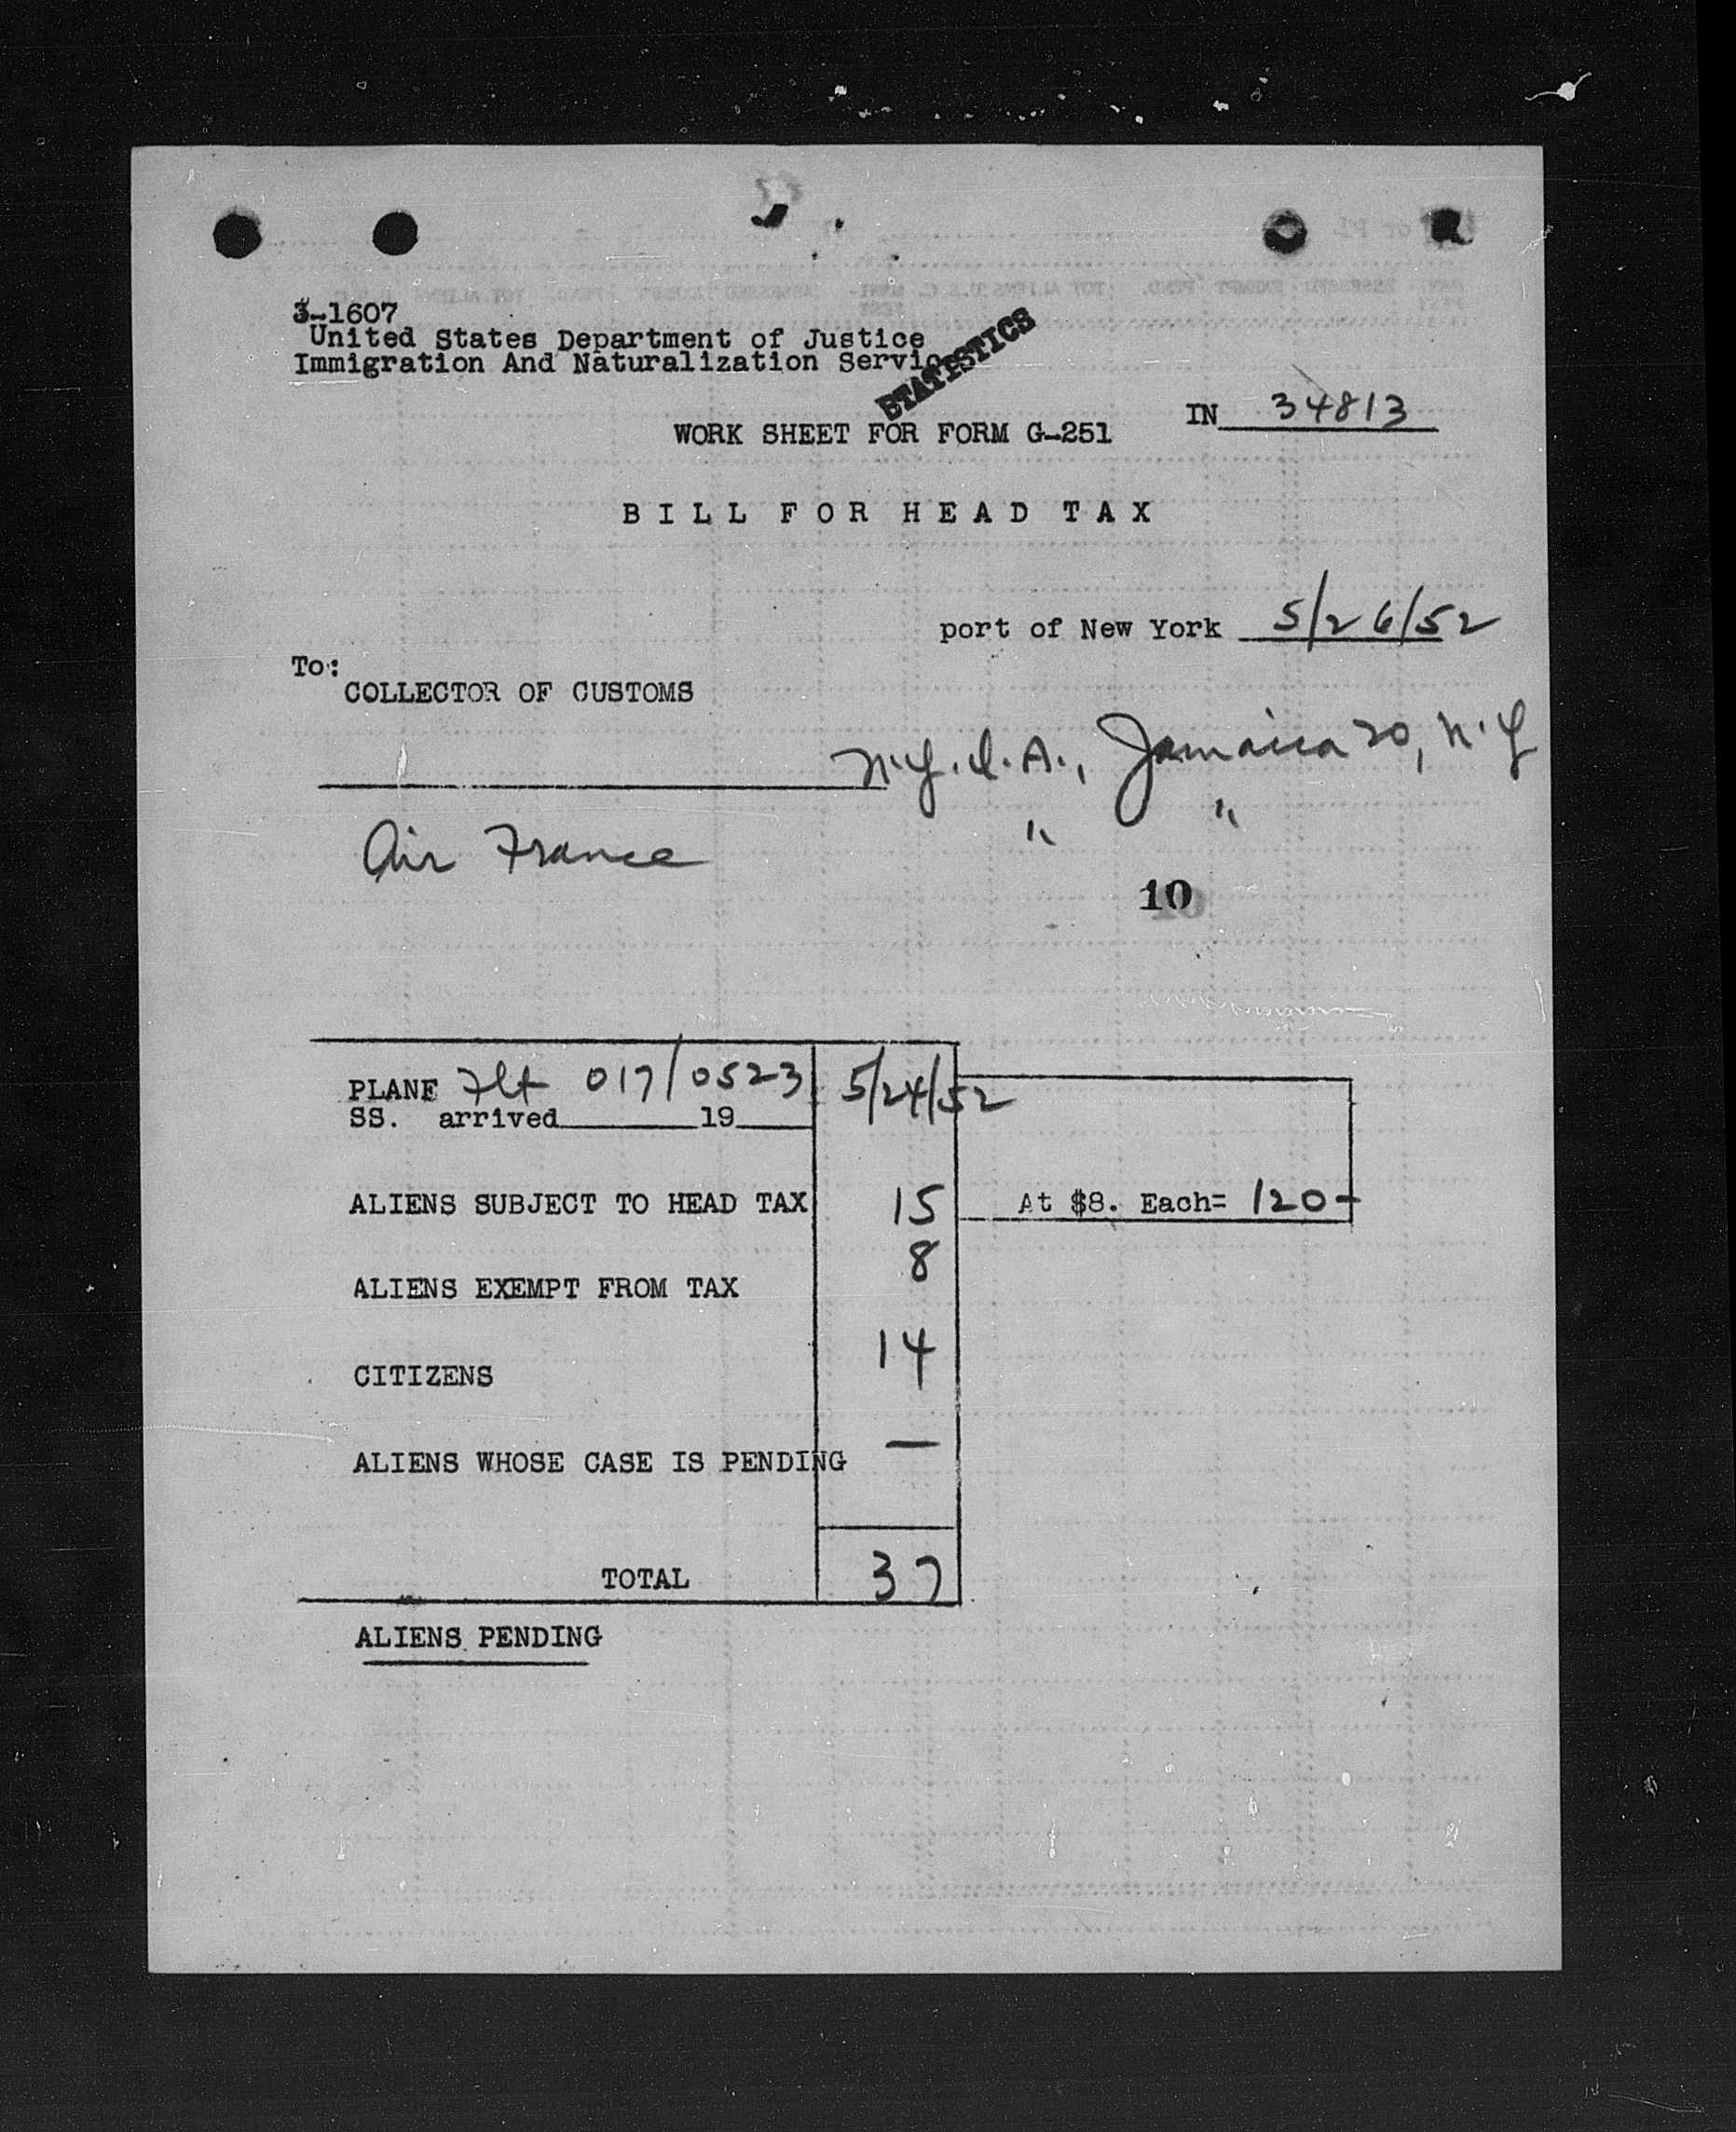 3-1607
United States Department of Justice
Immigration And Naturalization Service
STATISTICS
IN 34813
WORK SHEET FOR FORM G-251
BILL FOR HEAD TAX
port of New York 5/26/52
To:
COLLECTOR OF CUSTOMS
N.Y.I.A., Jamaica 30, N.Y
Air France " "
10
PLANE Flt 017/0523 5/24/52
SS. arrived 19
ALIENS SUBJECT TO HEAD TAX 15 At $8. Each= 120-
ALIENS EXEMPT FROM TAX 8
CITIZENS 14
ALIENS WHOSE CASE IS PENDING —
TOTAL 37
ALIENS PENDING